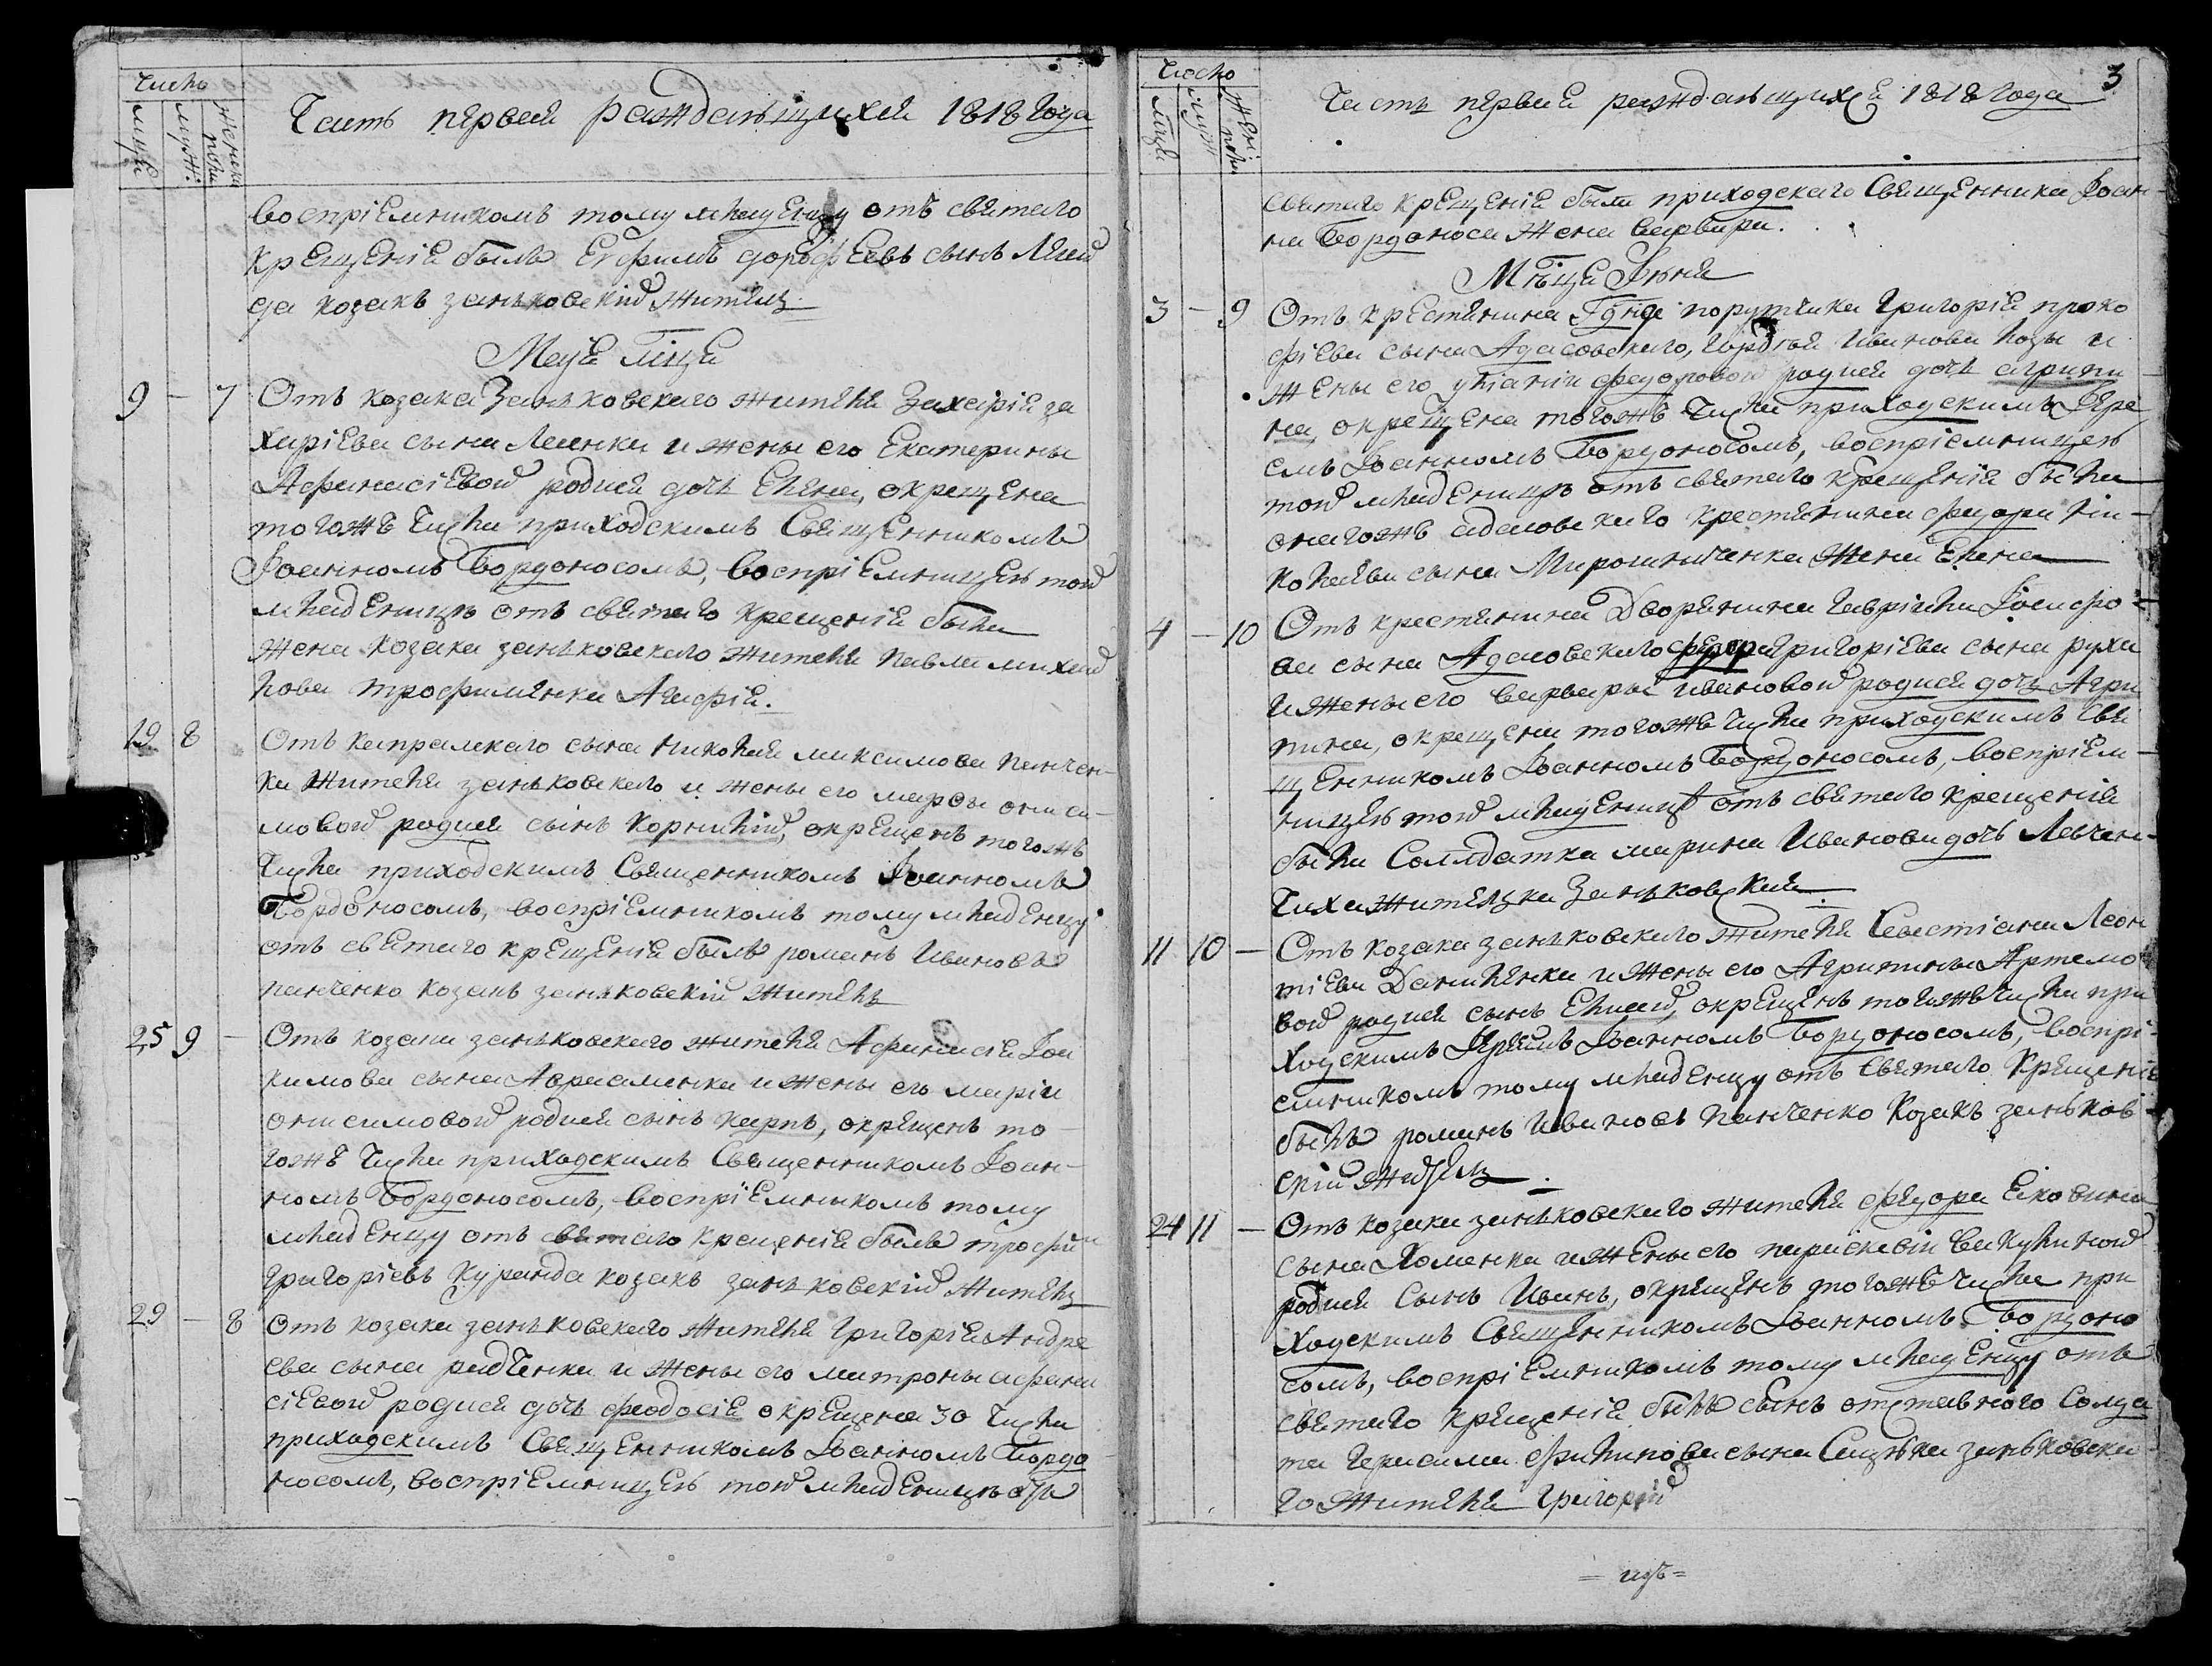 Число
мцей
муж:
женска
пола
Часть первая раждающихся 1818 года
воспріемникомъ тому младенцу отъ святаго
крещенія былъ Евфимъ дорофеевъ сынъ
да козакъ заньковскій житель
Маія мца
9 - 7 Отъ козака Заньковскаго жителя Захарія за
харіева сына Ленка и жены его Екатерины
Афанасіевой родися дочь Елена, окрещена
тогожъ числа приходскимъ Священникомъ
Іоанномъ Бордоносомъ, воспріемницею той
младеницѣ отъ святаго крещенія была
жена козака заньковскаго жителя павла михай
лова трофименка Агафія.
19 8 Отъ капралскаго сына николая максимова панчен-
ка жителя заньковскаго и жены его марфы ониси-
мовой родися сынъ Корнилій, окрещенъ тогожъ
числа приходскимъ Священникомъ Іоанномъ
Бордоносомъ, воспріемникомъ тому младенцу
отъ святаго крещенія былъ романъ Ивановъ
панченко козакъ заньковскій житель
25 9 - Отъ козака заньковскаго жителя Афанасія Іоа
кимова сына Авраменка и жены его маріи
онисимовой родися сынъ карпъ, окрещенъ то-
гожъ числа приходскимъ Священникомъ Іоан-
номъ Бордоносомъ, воспріемникомъ тому
младенцу отъ святаго крещенія былъ трофим
григоріевъ Куранда козакъ заньковскій житель
29 - 8 Отъ козака заньковскаго жителя григорія Андре
ева сына радченка и жены его матроны афана
сіевой родися дочь феодосія окрещена 30 числа
приходскимъ Священникомъ Іоанномъ Бордо
носомъ, воспріемницею той младеницѣ отъ
3
Число
мцей
муж
женс:
пола
Часть первая раждающихся 1818 года
святаго крещенія была приходскаго Священника Іоан-
на Бордоноса жена варвара.
Мѣсца Іюня
3 - 9 Отъ крестянина Гдна порутчика Григорія проко
фіева сына Адасовскаго, Гордѣя Иванова Козы и
жены его уліаніи федоровой родися дочь агрипи-
на, окрещена тогожъ числа приходскимъ Іере
емъ Іоанномъ Бордоносомъ, воспріемницею
той младеницѣ отъ святаго крещенія была
оногожъ адасовскаго крестянина федора ни-
колаева сына Мирошниченка жена Елена
4 - 10 Отъ крестянина Дворянина гавріила Іосифо-
ва сына Адасовскаго федора григоріева сына руха
и жены его варвары ивановой родися дочь Агри
пина, окрещена тогожъ числа приходскимъ Свя
щенникомъ Іоанномъ Бордоносомъ, воспріем-
ницею той младеницѣ отъ святаго крещенія
была Солдатка марина Иванова дочь Левчен-
чиха жителка Заньковская
11 10 - Отъ козака заньковскаго жителя Севастіана Леон
тіева Даниленка и жены его Агрипины Артемо
вой родися сынъ Елисей, окрещенъ тогожъ числа при
ходскимъ Іереемъ Іоанномъ Бордоносомъ, воспрі-
емникомъ тому младенцу отъ святаго крещенія
былъ романъ Ивановъ панченко козакъ заньков-
скій житель.
24 11 - Отъ козака заньковскаго жителя федора Яковлева
сына Хоменка и жены его параскевіи вакулиной
родися Сынъ Иванъ, окрещенъ тогожъ числа при
ходскимъ Священникомъ Іоанномъ Бордоно
сомъ, воспріемникомъ тому младенцу отъ
святаго крещенія былъ сынъ отставного Солда
та герасима филипова сына заньковска
го жителя григорій